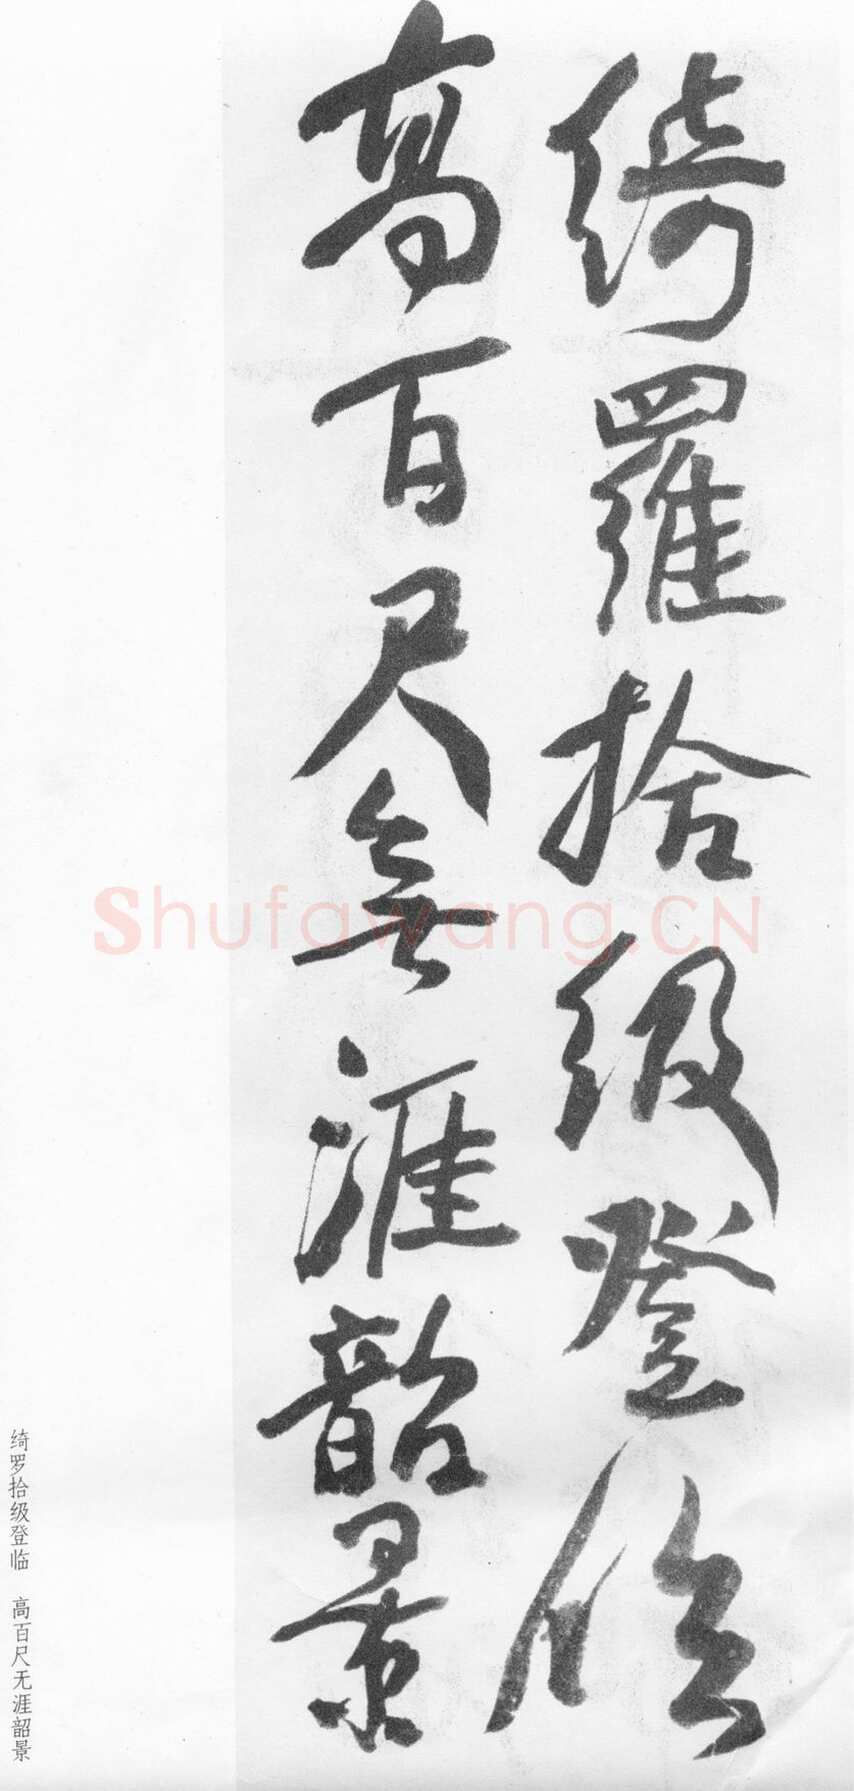 綺羅拾級登臨
高百尺無涯韶景
绮罗拾级登临 高百尺无涯韶景
Shufawang.CN